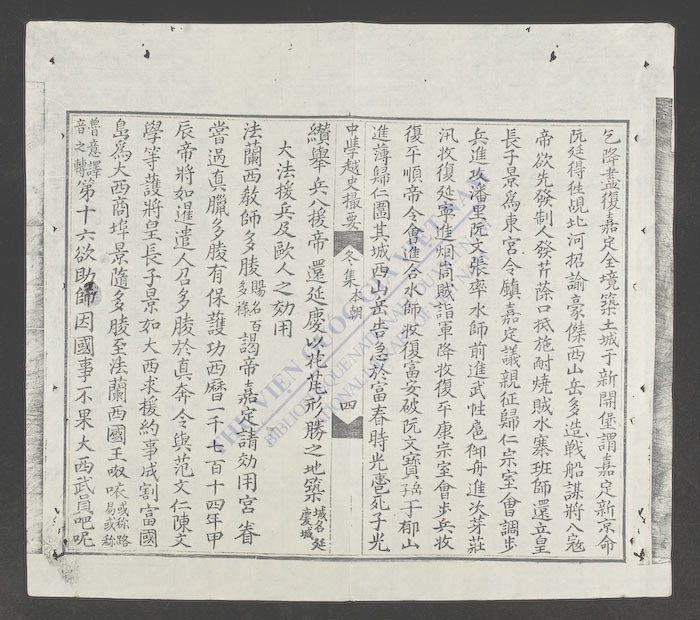 乞降盡復嘉定全境築土城于新開堡謂嘉定新京命
阮廷得徃覘北河招諭豪傑西山岳多造戦船謀將入寇
帝欲先發制人發芹蒢口抵施耐燒賊水寨班師還立皇
長子景爲東宮令鎮嘉定議親征歸仁宗室會調步
兵進攻潘里阮文張率水師前進武性扈御舟進次芽莊
汛收復延寧進烟崗賊詣軍降收復平康宗室會步兵收
復平順帝令會進合水師收復富安破阮文寶岳子于郁山
進薄歸仁圍其城西山岳告急於富春時光
中學越史撮要 冬集 本朝 四
纘舉兵入援帝還延慶以花苊形勝之地築城名延慶城
大法援兵及歐人之効用
法蘭西教師多陵賜名百多祿謁帝嘉定請効用宮眷
嘗過真臘多陵有保護功西曆一千七百十四年甲
辰帝將如暹遣人召多陵於真奔令與范文仁陳文
學等護將皇長子景如大西求援約事成割富國
島爲大西商埠景隨多陵至法蘭西國王呶𠸼或称路易或称
魯意譯音之轉第十六欲助師因國事不果大西武員吧呢
THƯ VIỆN QUỐC GIA VIỆT NAM
BIBLIOTHÈQUE NATIONALE DU VIETNAM
NATIONAL LIBRARY OF VIETNAM